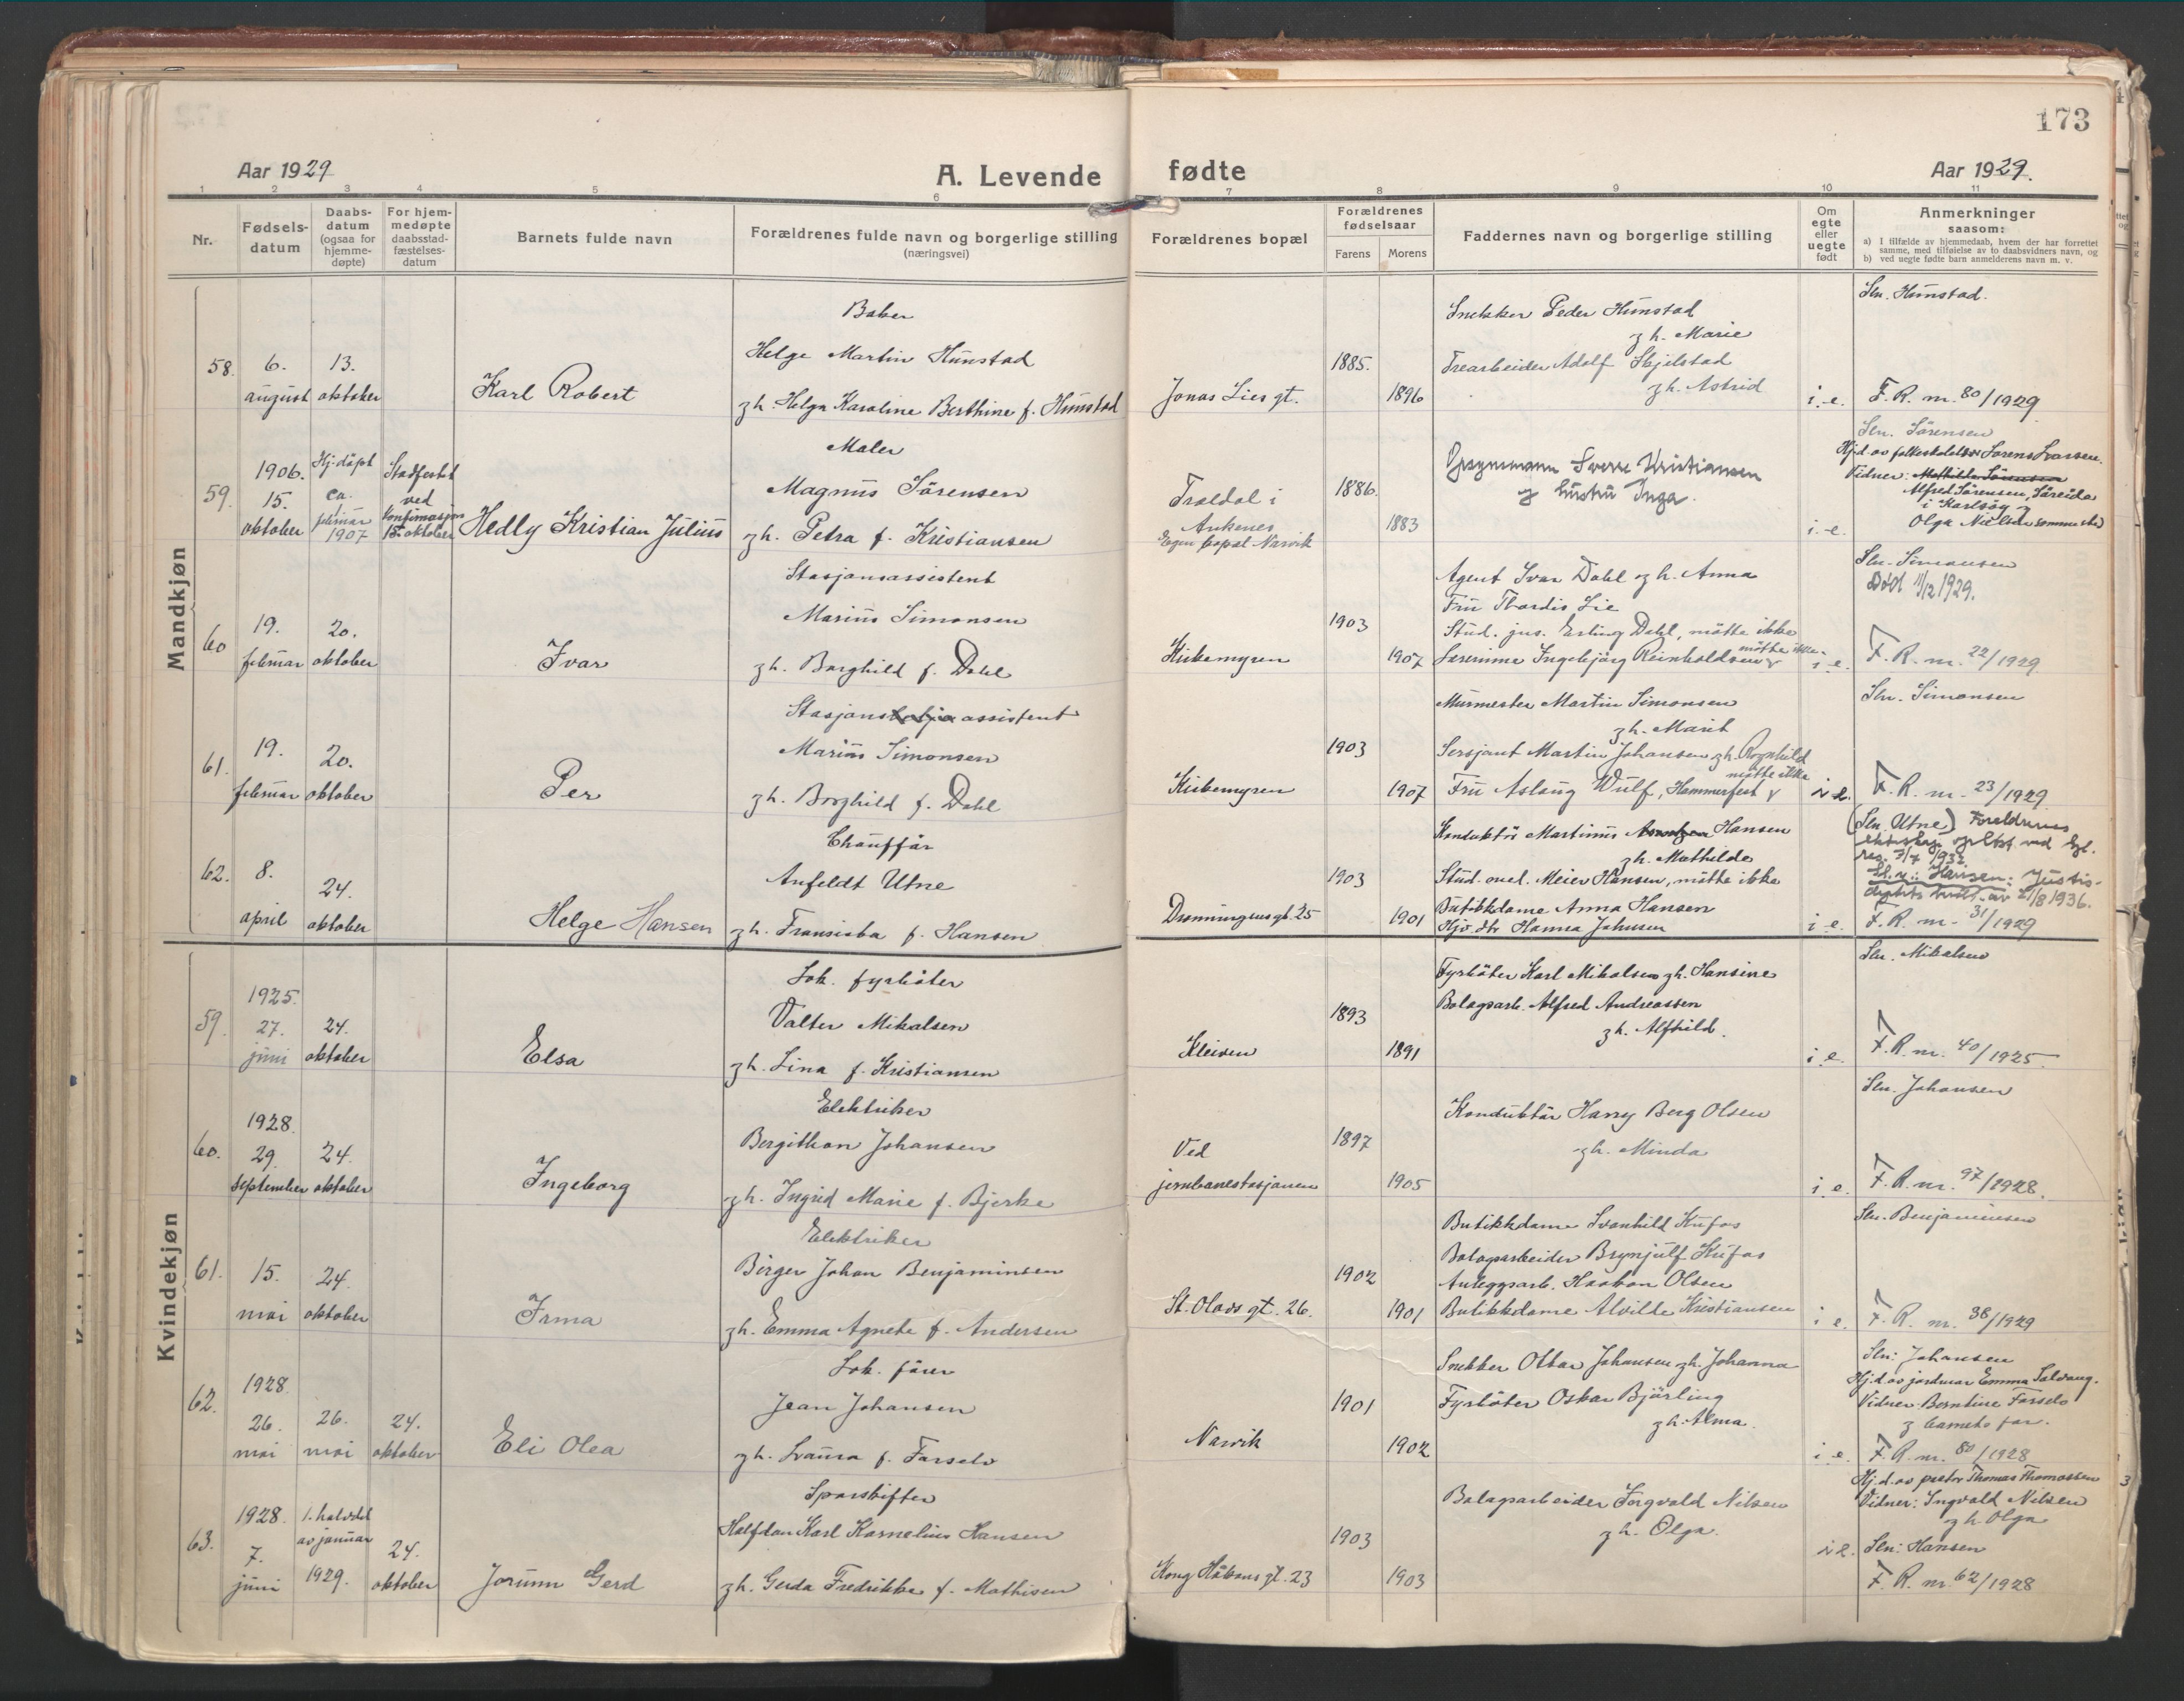 173
Aar 1929
A. Levende fødte
Aar 1929.
1 2 3 4 5 6 7 8 9 10 11
Nr.
Fødsels-
datum
Daabs-
datum
(ogsaa for
hjemme-
døpte)
For hjem-
medøpte
daabsstad-
fæstelses-
datum
Barnets fulde navn
Forældrenes fulde navn og borgerlige stilling
(næringsvei)
Forældrenes bopæl
Forældrenes
fødselsaar
Farens Morens
Faddernes navn og borgerlige stilling
Om
egte
eller
uegte
født
Anmerkninger
saasom:
a) I tilfælde av hjemmedaab, hvem der har forrettet
samme, med tilføielse av to daabsvidners navn, og
b) ved uegte fødte barn anmelderens navn m. v.
Mandkjøn
58.
6.
august
13.
oktober
Karl Robert
Baker
Helge Martin Hunstad
og h. Helga Karoline Berthine f. Hunstad
Jonas Lies gt.
1885.
1896
Snekker Peder Hunstad
og h. Marie
Trearbeider Adolf Skjelstad
og h. Astrid
i. e.
Sln. Hunstad.
F. R. nr. 80/1929
59.
1906.
15.
oktober
Hj. døpt
ca.
1.
februar
1907
Stadfestet
ved
Konfirmasjon
15. oktober
Hedly Kristian Julius
Maler
Magnus Sørensen
og h. Petra f. Kristiansen
Traldal i
Ankenes
Egen bopæl Narvik
1886.
1883
Sverre Kristiansen
og hustru Inga.
i. e.
Sln. Sørensen
Hj. d. av folkeskolelærer Sørens Larsen.
Vidner: Mathilde Sørensen
Alfred Sørensen, Søreida
i Karlsøy og
Olga Nielsen sammested
60
19.
februar
20.
oktober
Ivar
Stasjonsassistent
Marius Simonsen
og h. Borghild f. Dahl
Kirkemyren
1903
1907
Agent Ivar Dahl og h. Anna
Fru Thordis Lie
Stud. jur. Erling Dahl, møtte ikke
Lærerinne Ingebjørg Reinholdsen
møtte ikke.
i. e.
Sln. Simonsen
Død 11/12 1929.
F. R. nr. 22/1929
61.
19.
februar
20.
oktober
Per
Stasjons assistent
Marius Simonsen
og h. Borghild f. Dahl
Kirkemyren
1903
1907
Murmester Martin Simonsen
og h. Marit
Sersjant Martin Johansen og h. Ragnhild
møtte ikke
Fru Aslaug Wulf, Hammerfest
i e.
Sln. Simonsen
F. R. nr. 23/1929
62.
8.
april
24.
oktober
Helge Hansen
Chauffør
Anfeldt Utne
og h. Fransiska f. Hansen
Dronningens gt. 25
1903
1901
Konduktør Martinus Hansen
og h. Mathilde
Stud. med. Meier Hansen, møtte ikke
Butikkdame Anna Hansen
Hjv. dtr Hanna Johnsen
i e.
(Sln. Utne) Foreldrenes
ekteskap opløst ved
res. 7/7 1932.
Sl. n.: Hansen: Justis-
21/8 1936.
F. R. nr. 31/1929
Kvindekjøn
59.
1925.
27.
juni
24.
oktober
Elsa
Lok. fyrbøter
Valter Mikalsen
og h. Lina f. Kristiansen
Kleiven
1893
1891
Fyrbøter Karl Mikalsen og h. Hansine
Bolagsarb. Alfred Andreassen
og h. Alfhild.
i e.
Sln. Mikalsen
F. R. nr. 40/1925
60.
1928.
29.
september
24.
oktober
Ingeborg
Elektriker
Bergithon Johansen
og h. Ingrid Marie f. Bjerke
Ved
jernbanestasjonen
1897
1905
Konduktør Harry Berg Olsen
og h. Minda
i e.
Sln. Johansen
F. R. nr. 97/1928.
61.
15.
mai
24.
oktober
Irma
Elektriker
Birger Johan Benjaminsen
og h. Emma Agnete f. Andersen
St. Olavs gt. 26.
1902
1901
Butikkdame Svanhild Kufas
Bolagsarbeider Brynjulf Kufas
Anleggsarb. Haakon Olsen
Butikkdame Alvilde Kristiansen
i e.
Sln. Benjaminsen
F. R. nr. 38/1929
62.
1928.
26.
mai
26.
mai
24.
oktober
Eli Olea
Lok. fører
Jean Johansen
og h. Laura f. Farselv
Narvik
1901
1902
Snekker Ottar Johansen og h. Johanna
Fyrbøter Oskar Bjørling
og h. Alma.
i e.
Sln: Johansen
Hj. d. av jordmor Emma Salvaag.
Vidner Berntine Farselv
og barnets far.
F. R. nr. 80/1928
63.
1928.
7.
juni
1. halvdel
av januar
1929.
24.
oktober
Jorunn Gerd
Sporskifter
Halfdan Karl Kornelius Hansen
og h. Gerda Fredrikke f. Mathisen
Kong Håkons gt. 23
1903
1903
Bolagsarbeider Ingvald Nilsen
og h. Olga.
i e.
Hj. d. av pastor Thomas Thomassen
Vidner: Ingvald Nilsen
og h. Olga
Sln: Hansen
F. R. nr. 62/1928